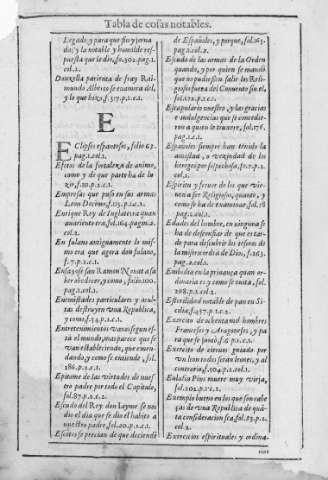 Tabla de cosas notables.
Legado, y para que fin y jorna
da, y la notable y humilde res
puesta que le dio, fo.502. pag.1.
col.2.
Donzella patricia de fray Rai
mundo Alberto se examora del,
y lo que hizo, f.517. p.1. c.1.
E
ECloses espantosos, folio 67.
pag.1. col.1.
Efetos de la fortaleza de animo,
como y de que parte ha de la
zo, f.10. p.1. c.1.
Empresas que puso en sus armas
Leon Decimo, f.115. p.1. c.2.
Enrique Rey de Inglaterra quan
avariento era, fol.164. pagin.2.
col.2.
En fulano antiguamente lo mis
mo era que agora don fulano,
f.7. p.1. c.1.
san Ramon Nonat a sa
ber
pag.1. col.1.
Enemistades particulares y ocul
tas destruyen una Republica,
y como, f.74. p.2. c.1.
Entretenimientos varios segun es
tà el mundo, mas parece que se
van estableciendo, que enmen
dando, y como se entiende, fol.
286. p.1. c.1.
Epitome de las virtudes de nues
tro padre por todo el Capitulo,
fol.87. p.1. c.2.
Escudo del Rey don Iayme se no
dio el dia que se dio el habito a
nuestro padre, fol.20. p.1. c.2.
se precian de que deciende
de Españoles, y porque, fol.165.
pag.1. col.2.
Escudo de las armas de la Orden
quando, y por quien se mandò
que no pudiessen salir los Reli-
giosos fuera del Convento sin él,
fol.172. p.2. c.1.
Escapulario nuestro, y las gracias
e indulgencias que se concedie-
ron a quien le traxere, fol.176.
pag.1. c.1.
Españoles siempre han tenido la
amistad, o vezindad de los
estrangeros por sospechosa, fo.17. p.2.
c.1.
Espiritu y fervor de los que vie-
nen a ser Religiosos, quanto, y
como se ha de examinar, fol.78
pag.1. col.1.
Edades del hombre, en ninguna se
ha de desconfiar de que es tar-
de para descubrir los tesoros de
la misericordia de Dios, f.263.
pag.1. col.2.
Embidia en la privança quan or-
dinaria es y como se evita, fol.
208. p.1. c.2.
Esterilidad notable de pan en Si-
cilia, f.457. p.1. c.2.
Exercito de ochenta mil hombres
Franceses y Aragoneses, y pa
ra que se juntò, f.6. p.1. c.1.
Exercito de ciervos guiado por
un leon todos seran leones, y al
contrario, f.304. p.2. col.1.
Eulalia Pins muere muy vieja,
fol.102. p.1. c.2.
Exemplo bueno en los que son cabe
ças de una Republica de quã-
ta consideracion sea, fol.13. p.1.
col.2.
Exercicios espirituales y ordina-